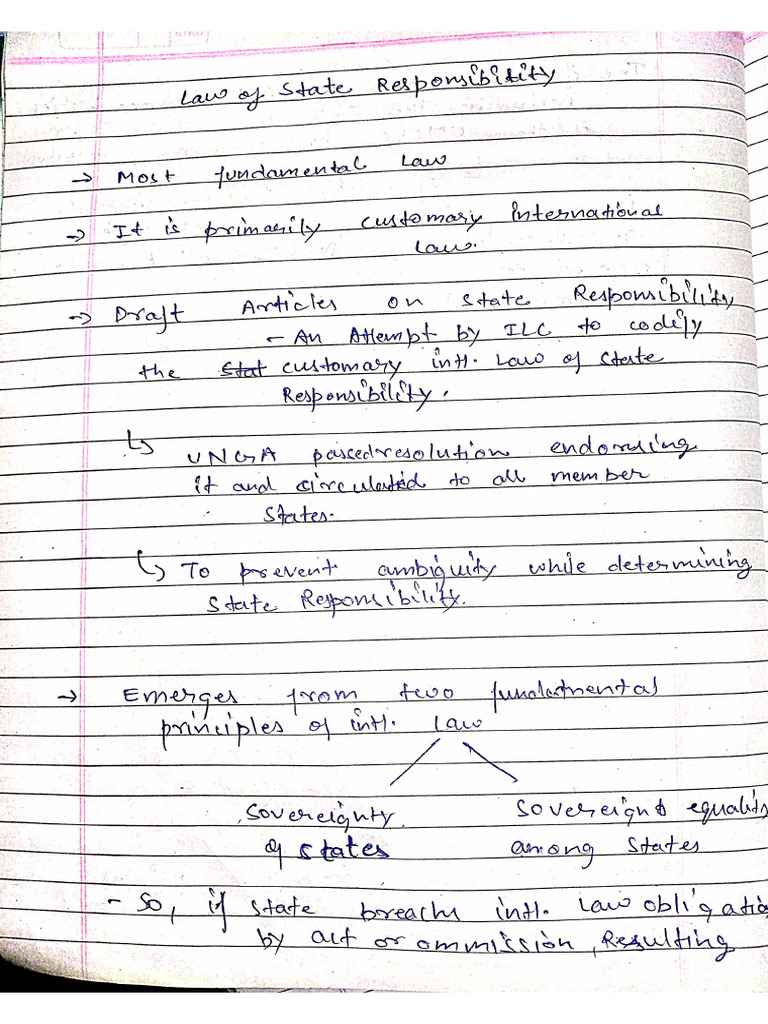 Law of State Responsibility
→ Most fundamental Law
→ It is primarily customary International
Law.
→ Draft Articles on State Responsibility
- An Attempt by ILC to codify
the Stat customary intl. Law of State
Responsibility.
↳ UNGA passed resolution endorsing
it and circulated to all member
States.
↳ To prevent ambiguity while determining
State Responsibility.
→ Emerges from two fundamental
principles of intl. Law
Sovereignty Sovereign equality
of States among States
- So, if state breachs intl. Law obligation
by act or ommission, Resulting